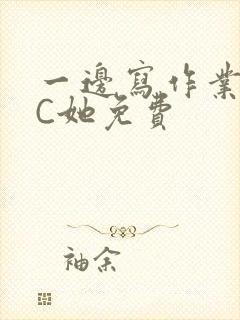 一邊寫作業
C她免費
袖余